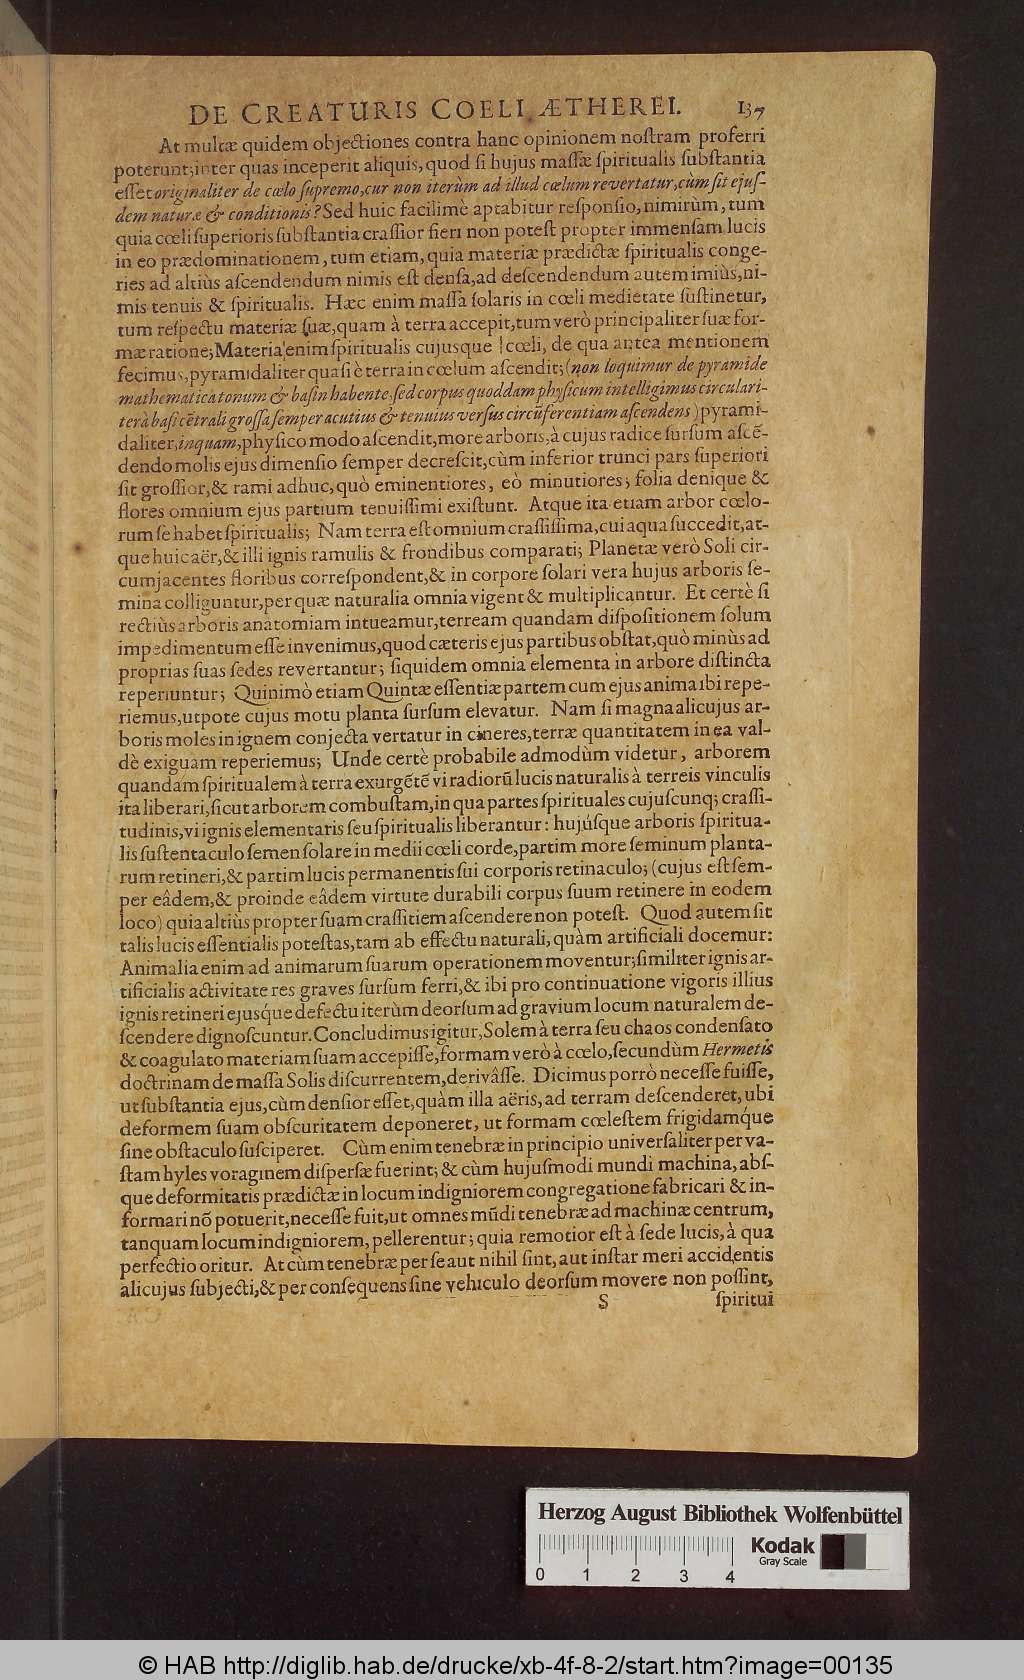 DE CREATURIS COELI ÆTHEREI. 137
At multæ quidem objectiones contra hanc opinionem noſtram proferri
poterunt; inter quas inceperit aliquis, quod ſi hujus maſſæ ſpiritualis ſubſtantia
eſſet originaliter de cœlo ſupremo, cur non iterùm ad illud cœlum revertatur, cùm ſit ejuſ-
dem naturæ & conditionis? Sed huic facilimè aptabitur reſponſio, nimirùm, tum
quia cœli ſuperioris ſubſtantia craſſior fieri non poteſt propter immenſam lucis
in eo prædominationem, tum etiam, quia materiæ prædictæ ſpiritualis conge-
ries ad altiùs aſcendendum nimis eſt denſa, ad deſcendendum autem imiùs, ni-
mis tenuis & ſpiritualis. Hæc enim maſſa ſolaris in cœli medietate ſuſtinetur,
tum reſpectu materiæ ſuæ, quam à terra accepit, tum verò principaliter ſuæ for-
mæ ratione; Materia enim ſpiritualis cujusque cœli, de qua antea mentionem
fecimus, pyramidaliter quaſi è terra in cœlum aſcendit; (non loquimur de pyramide
mathematica tonum & baſin habente, ſed corpus quoddam phyſicum intelligimus circulari-
ter à baſi cẽtrali groſſa ſemper acutius & tenuius verſus circũferentiam aſcendens) pyrami-
daliter, inquam, phyſico modo aſcendit, more arboris, à cujus radice ſurſum aſcẽ-
dendo molis ejus dimenſio ſemper decreſcit, cùm inferior trunci pars ſuperiori
ſit groſſior, & rami adhuc, quò eminentiores, eò minutiores; folia denique &
flores omnium ejus partium tenuiſſimi exiſtunt. Atque ita etiam arbor cœlo-
rum ſe habet ſpiritualis; Nam terra eſt omnium craſſiſſima, cui aqua ſuccedit, at-
que huic aër, & illi ignis ramulis & frondibus comparati; Planetæ verò Soli cir-
cumjacentes floribus correſpondent, & in corpore ſolari vera hujus arboris ſe-
mina colliguntur, per quæ naturalia omnia vigent & multiplicantur. Et certè ſi
rectiùs arboris anatomiam intueamur, terream quandam diſpoſitionem ſolum
impedimentum eſſe invenimus, quod cæteris ejus partibus obſtat, quò minùs ad
proprias ſuas ſedes revertantur; ſiquidem omnia elementa in arbore diſtincta
reperiuntur; Quinimò etiam Quintæ eſſentiæ partem cum ejus anima ibi repe-
riemus, utpote cujus motu planta ſurſum elevatur. Nam ſi magna alicujus ar-
boris moles in ignem conjecta vertatur in cineres, terræ quantitatem in ea val-
dè exiguam reperiemus; Unde certè probabile admodùm videtur, arborem
quandam ſpiritualem à terra exurgẽtẽ vi radiorũ lucis naturalis à terreis vinculis
ita liberari, ſicut arborem combuſtam, in qua partes ſpirituales cujuſcunq; craſſi-
tudinis, vi ignis elementaris ſeu ſpiritualis liberantur: hujúſque arboris ſpiritua-
lis ſuſtentaculo ſemen ſolare in medii cœli corde, partim more ſeminum planta-
rum retineri, & partim lucis permanentis ſui corporis retinaculo; (cujus eſt ſem-
per eâdem, & proinde eâdem virtute durabili corpus ſuum retinere in eodem
loco) quia altiùs propter ſuam craſſitiem aſcendere non poteſt. Quod autem ſit
talis lucis eſſentialis poteſtas, tam ab effectu naturali, quàm artificiali docemur:
Animalia enim ad animarum ſuarum operationem moventur; ſimiliter ignis ar-
tificialis activitate res graves ſurſum ferri, & ibi pro continuatione vigoris illius
ignis retineri ejusq́ue defectu iterùm deorſum ad gravium locum naturalem de-
ſcendere dignoſcuntur. Concludimus igitur, Solem à terra ſeu chaos condenſato
& coagulato materiam ſuam accepiſſe, formam verò à cœlo, ſecundùm Hermetis
doctrinam de maſſa Solis diſcurrentem, derivâſſe. Dicimus porrò neceſſe fuiſſe,
ut ſubſtantia ejus, cùm denſior eſſet, quàm illa aëris, ad terram deſcenderet, ubi
deformem ſuam obſcuritatem deponeret, ut formam cœleſtem frigidamq́ue
ſine obſtaculo ſuſciperet. Cùm enim tenebræ in principio univerſaliter per va-
ſtam hyles voraginem diſperſæ fuerint; & cùm hujuſmodi mundi machina, abſ-
que deformitatis prædictæ in locum indigniorem congregatione fabricari & in-
formari nõ potuerit, neceſſe fuit, ut omnes mũdi tenebræ ad machinæ centrum,
tanquam locum indigniorem, pellerentur; quia remotior eſt à ſede lucis, à qua
perfectio oritur. At cùm tenebræ per ſe aut nihil ſint, aut inſtar meri accidentis
alicujus ſubjecti, & per conſequens ſine vehiculo deorſum movere non poſſint,
S ſpiritui
Herzog August Bibliothek Wolfenbüttel
Kodak
Gray Scale
0 1 2 3 4
© HAB http://diglib.hab.de/drucke/xb-4f-8-2/start.htm?image=00135